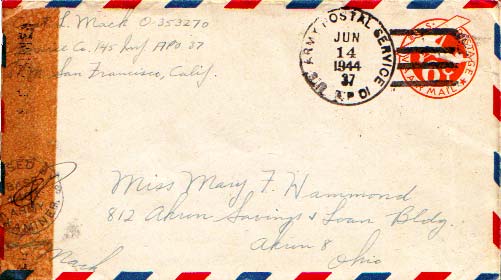 L. Mack O-353270
Co. 145 Inf APO 37
San Francisco, Calif.
ARMY POSTAL SERVICE
JUN
14
1944
37
APO
U.S. POSTAGE
VIA AIR MAIL
Miss Mary F. Hammond
812 Akron Savings & Loan Bldg.
Akron 8
Ohio
Mack